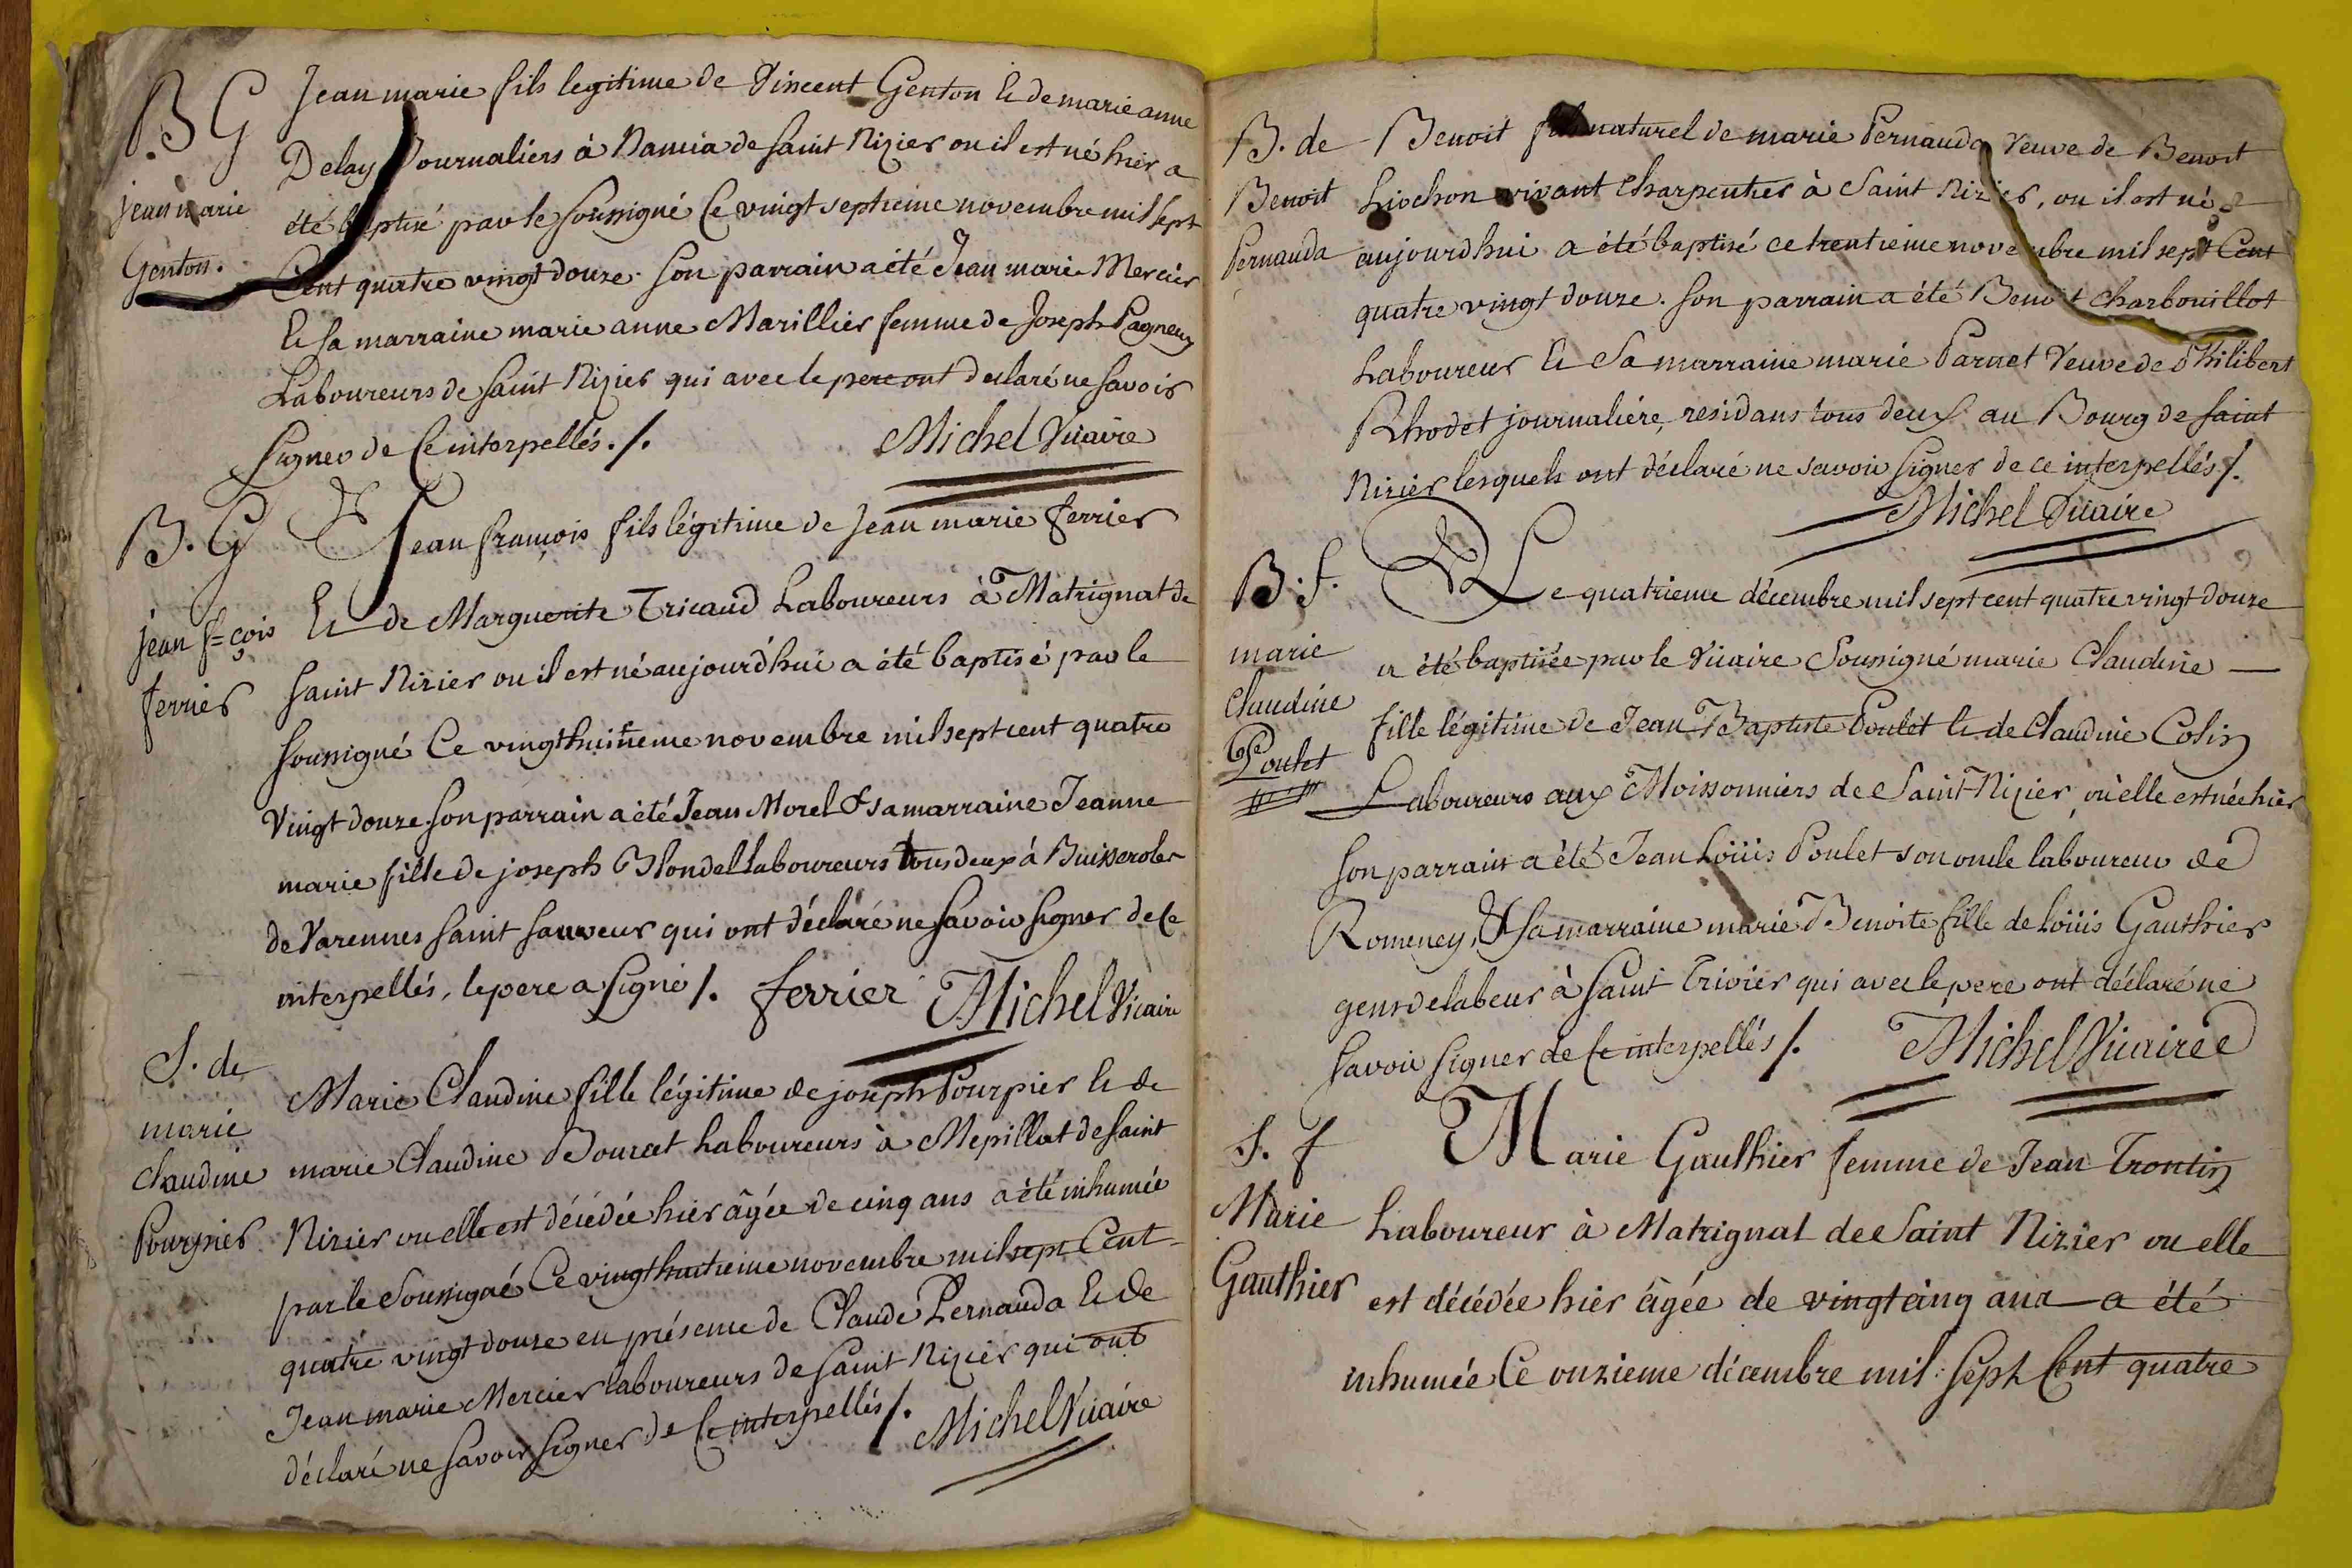 B G
jean marie
Genton.
Jean marie fils legitime de Vincent Genton & de marie anne
Delay Journaliers à Namia de saint Nizier ou il est né hier a
été baptisé par le soussigné Ce vingt septieme novembre mil sept
Cent quatre vingt douze. son parrain a été Jean marie Mercier
& sa marraine marie anne Marillier femme de Joseph Pagneux
Laboureurs de saint Nizier qui avec le pere ont declaré ne savoir
signer de Ce interpellés ./. Michel Vicaire
B. G
jean f=çois
ferrier
Jean françois fils légitime de Jean marie ferrier
& de Marguerite Tricaud Laboureurs à Matrignat de
saint Nizier ou il est né aujourd'hui a été baptisé par le
soussigné Ce vingthuitieme novembre mil sept cent quatre
Vingt douze. son parrain a été Jean Morel & sa marraine Jeanne
marie fille de joseph Blondel Laboureurs tous deux à Buisserole
de Varennes saint sauveur qui ont déclaré ne savoir signer de Ce
interpellés, le pere a signé /. ferrier Michel Vicaire
S. de
marie
claudine
Pourpier
Marie Claudine fille légitime de joseph Pourpier & de
marie Claudine Bourcet Laboureurs à Mepillat de saint
Nizier ou elle est décédée hier âgée de cinq ans a été inhumée
par le soussigné Ce vingthuitieme novembre mil sept Cent
quatre vingt douze en présence de Claude Pernauda & de
Jean marie Mercier laboureurs de saint Nizier qui ont
déclaré ne savoir signer de Ce interpellés /. Michel Vicaire
B. de
Benoit
Pernauda
Benoit fils naturel de marie Pernauda Veuve de Benoit
Liochon vivant charpentier à Saint Nizier, ou il est né
aujourd'hui a été baptisé ce trentieme novembre mil sept Cent
quatre vingt douze. son parrain a été Benoit charbouillot
Laboureur & Sa marraine marie Parnet Veuve de Philibert
Rhodet journaliére, residans tous deux au Bourg de saint
Nizier lesquels ont déclaré ne savoir signer de ce interpellés /.
Michel Vicaire
B. f.
marie
claudine
Poulet
Le quatrieme décembre mil sept cent quatre vingt douze
a été baptisée par le Vicaire Soussigné marie Claudine —
fille légitime de Jean Baptiste Poulet & de Claudine Colin
Laboureurs aux Moissonniers de Saint Nizier ou elle est née hier
son parrain a été Jean Loüis Poulet son oncle laboureur de
Romeney, & sa marraine marie Benoite fille de Loüis Gauthier
gens de labeur à saint Trivier qui avec le pere ont déclaré ne
savoir signer de Ce interpellés /. Michel Vicaire
S. f
Marie
Gauthier
Marie Gauthier femme de Jean Trontin
Laboureur à Matrignat de Saint Nizier ou elle
est décédée hier âgée de vingt cinq ans a été
inhumée Ce onzieme décembre mil sept Cent quatre